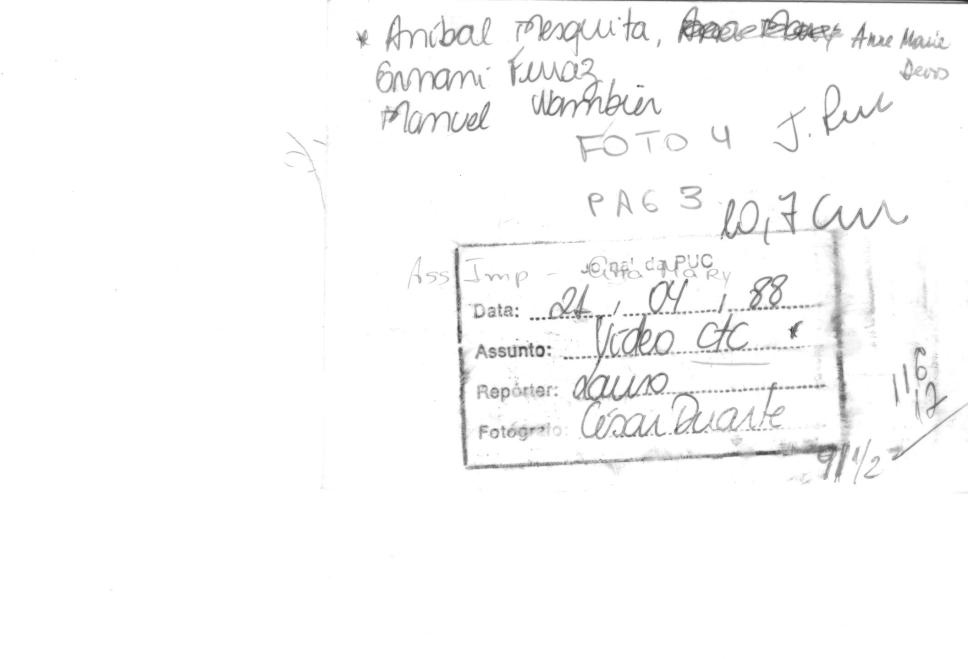 * Aníbal Mesquita, Anne Marie
Ernani Ferraz
Manuel Wambier
FOTO 4 J. Puc
PAG 3
10,7 cm
Jornal da PUC
Ass Imp -
Data: 21 / 04 / 88
Assunto: Vídeo CTC *
Repórter: Lauro
Fotógrafo: César Duarte
116
17
91 1/2